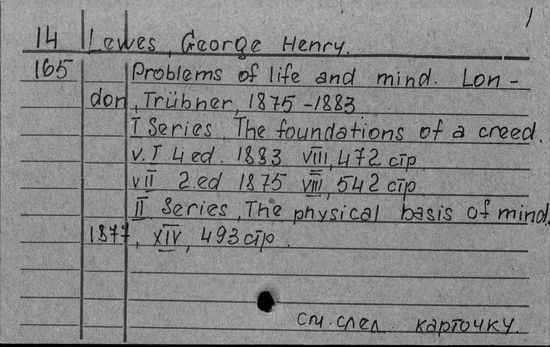 1
14 Lewes, George Henry.
165 Problems of life and mind. Lon-
don, Trübner, 1875-1883
I Series, The foundations of a creed.
v. I 4 ed. 1883 VIII, 472 стр
v II 2.ed 1875 VIII, 542 стр
II Series, The physical basis of mind,
1877, XIV, 493 стр.
см. след. карточку.